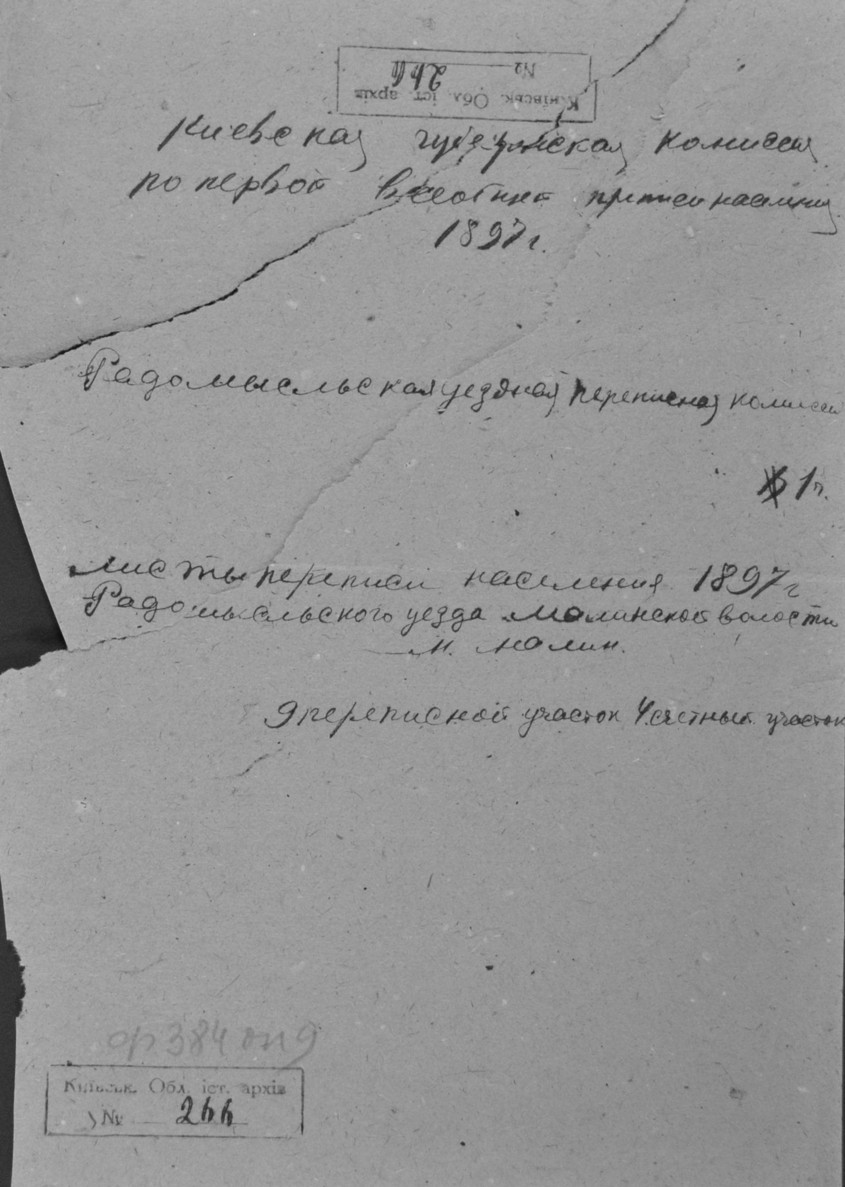 Київськ. Обл. іст. архів
№ 266
Киевская губернская комиссия
по первой всеобщей переписи населения
1897 г.
Радомысльская уездная переписная комиссия
1 г.
листы переписи населения 1897 г
Радомысльского уезда Малинской волости
м. Малин.
9 переписной участок 4 счетный участок
ф 384 оп 9
Київськ. Обл. іст. архів
№ 266